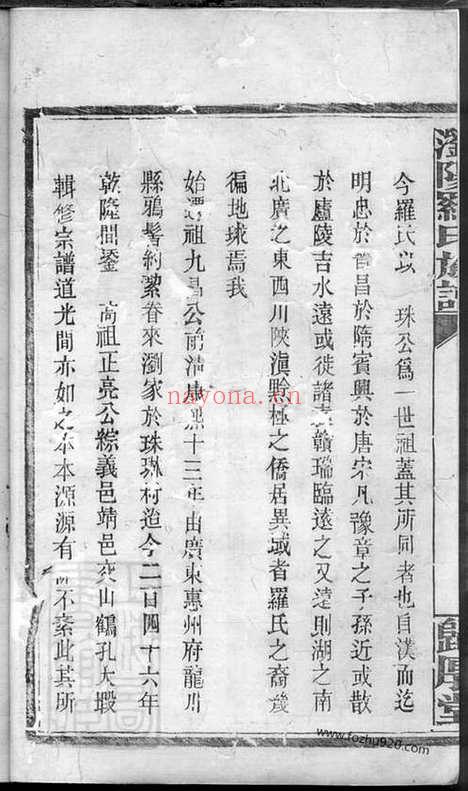 瀏陽羅氏族譜
歸厚堂
今羅氏以 珠公爲一世祖蓋其所同者也自漢而迄
明忠於晉昌於隋賓興於唐宋凡豫章之子孫近或散
於廬陵吉水遠或徙諸袁贛瑞臨遠之又遠則湖之南
北廣之東西川陝滇黔極之僑居異域者羅氏之裔幾
徧地球焉我
始遷祖九昌公前清康熙十三年由廣東惠州府龍川
縣鴉髻約絜眷來瀏家於珠琳村迄今二百四十六年
乾隆間鋆 高祖正亮公綜義邑靖邑夾山鶴孔大塅
輯修宗譜道光間亦如之本本源源有 不紊此其所
nayona.cn
www.fozhu920.com